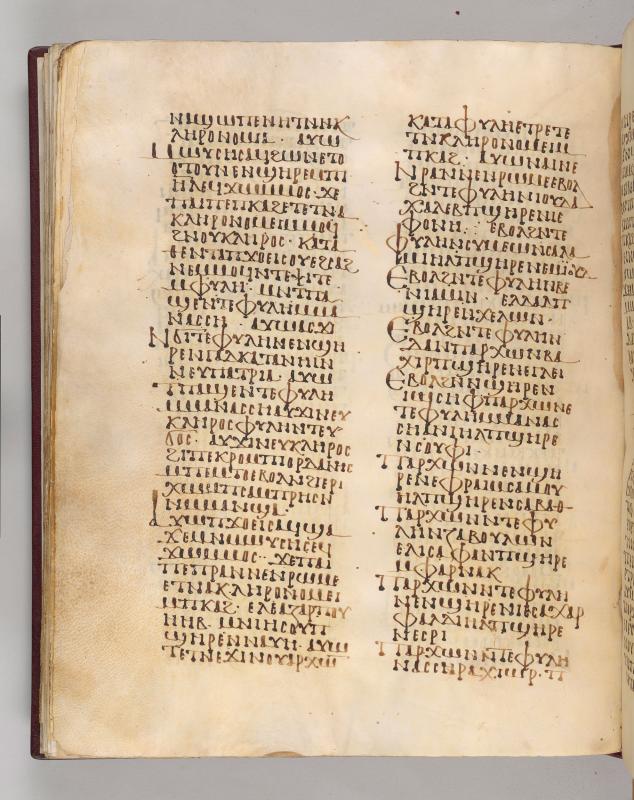 ⲛⲁϣⲱⲡⲉⲛⲏⲧⲛⲛⲕ
ⲗⲏⲣⲟⲛⲟⲙⲓⲁ · ⲁⲩⲱ
ⲙⲱⲩⲥⲏⲥⲁϥϩⲱⲛⲉⲧⲟ
ⲟⲧⲟⲩⲛⲉⲛϣⲏⲣⲉⲙⲡⲓ
ⲏⲗⲉϥϫⲱⲙⲙⲟⲥ · ϫⲉ
ⲡⲁⲓⲡⲉⲡⲕⲁϩⲉⲧⲉⲧⲛⲁ
ⲕⲗⲏⲣⲟⲛⲟⲙⲉⲓⲙⲙⲟϥ
ϩⲛⲟⲩⲕⲗⲏⲣⲟⲥ · ⲕⲁⲧⲁ
ⲑⲉⲛⲧⲁⲡϫⲟⲉⲓⲥⲟⲩⲉϩⲥⲁϩ
ⲛⲉⲙⲙⲟϥⲛⲧⲉⲯⲓⲧⲉ
ⲙⲫⲩⲗⲏ · ⲙⲛⲧⲡⲁ
ϣⲉⲛⲧⲉⲫⲩⲗⲏⲙⲙⲁ
ⲛⲁⲥⲥⲏ · ⲁⲩⲱⲁⲥϫⲓ
ⲛϭⲓⲧⲉⲫⲩⲗⲏⲛⲉⲛϣⲏ
ⲣⲉⲛⲅⲁⲇⲕⲁⲧⲁⲛⲏⲓⲛ
ⲛⲉⲩⲡⲁⲧⲣⲓⲁ · ⲁⲩⲱ
ⲧⲡⲁϣⲉⲛⲧⲉⲫⲩⲗⲏ
ⲙⲙⲁⲛⲁⲥⲥⲏⲁⲩϫⲓⲛⲉⲩ
ⲕⲗⲏⲣⲟⲥ
ⲁⲩϫⲓⲛⲉⲩⲕⲗⲏⲣⲟⲥ
ϩⲓⲡⲉⲕⲣⲟⲙⲡⲓⲟⲣⲇⲁⲛⲏⲥ
ⲙⲡⲉⲙⲧⲟⲉⲃⲟⲗⲛϩⲓⲉⲣⲓ
ⲭⲱ
ⲛⲙⲙⲁⲛϣⲁ ·
ⲁⲩⲱⲡϫⲟⲉⲓⲥⲁϥϣⲁ
ϫⲉⲙⲛⲙⲱⲩⲥⲏⲥⲉϥ
ϫⲱⲙⲙⲟⲥ · ϫⲉⲡⲁⲓ
ⲡⲉⲡⲣⲁⲛⲛⲉⲛⲣⲱⲙⲉ
ⲉⲧⲛⲁⲕⲗⲏⲣⲟⲛⲟⲙⲉⲓ
ⲙⲡⲕⲁϩ · ⲉⲗⲉⲁⲍⲁⲣⲡⲟⲩ
ⲏⲏⲃ · ⲙⲛⲓⲏⲥⲟⲩⲡ
ϣⲏⲣⲉⲛⲛⲁⲩⲏ · ⲁⲩⲱ
ⲧⲉⲧⲛⲉϫⲓⲛⲟⲩⲁⲣⲭⲱ
ⲕⲁⲧⲁⲫⲩⲗⲏⲉⲧⲣⲉⲧⲉ
ⲧⲛⲕⲗⲏⲣⲟⲛⲟⲙⲉⲓⲙ
ⲡⲕⲁϩ · ⲁⲩⲱⲛⲁⲓⲛⲉ
ⲛⲣⲁⲛⲛⲉⲛⲣⲱⲙⲉⲉⲃⲟⲗ
ϩⲛⲧⲉⲫⲩⲗⲏⲛⲓⲟⲩⲇⲁ
ⲭⲁⲗⲉⲃⲡϣⲏⲣⲉⲛⲓⲉ
ⲫⲟⲛⲏ · ⲉⲃⲟⲗϩⲛⲧⲉ
ⲫⲩⲗⲏⲛⲥⲩⲙⲉⲱⲛⲥⲁⲗⲁ
ⲙⲓⲏⲗⲡϣⲏⲣⲉⲛⲉⲙⲓⲟⲩⲇ
ⲉⲃⲟⲗϩⲛⲧⲉⲫⲩⲗⲏⲛⲃⲉ
ⲛⲓⲁⲙⲓⲛ · ⲉⲗⲇⲁⲇⲡ
ϣⲏⲣⲉⲛⲭⲉⲗⲱⲛ ·
ⲉⲃⲟⲗϩⲛⲧⲉⲫⲩⲗⲏⲛ
ⲇⲁⲛⲡⲁⲣⲭⲱⲛⲃⲁ
ⲭⲓⲣⲡϣⲏⲣⲉⲛⲉⲅⲗⲉⲓ
ⲉⲃⲟⲗϩⲛⲛϣⲏⲣⲉⲛ
ⲓⲱⲥⲏⲫⲡⲁⲣⲭⲱⲛⲛ
ⲧⲉⲫⲩⲗⲏⲙⲙⲁⲛⲁⲥ
ⲥⲏⲁⲛⲓⲏⲗⲡϣⲏⲣⲉ
ⲛⲥⲟⲩⲫⲓ ·
ⲡⲁⲣⲭⲱⲛⲛⲛⲉⲛϣⲏ
ⲣⲉⲛⲉⲫⲣⲁⲓⲙⲕⲁⲙⲟⲩ
ⲏⲗⲡϣⲏⲣⲉⲛⲥⲁⲃⲁⲑⲁ
ⲡⲁⲣⲭⲱⲛⲛⲧⲉⲫⲩ
ⲗⲏⲛⲍⲁⲃⲟⲩⲗⲱⲛ
ⲉⲗⲓⲥⲁⲫⲁⲛⲡϣⲏⲣⲉ
ⲙⲫⲁⲣⲛⲁⲕ
ⲡⲁⲣⲭⲱⲛⲛⲧⲉⲫⲩⲗⲏ
ⲛⲉⲛϣⲏⲣⲉⲛⲓⲥⲁⲭⲁⲣ
ⲫⲁⲗⲧⲓⲏⲗⲡϣⲏⲣⲉ
ⲡⲁⲣⲭⲱⲛⲛⲧⲉⲫⲩⲗⲏ
ⲛⲁⲥⲥⲏⲣⲁⲭⲓⲱⲣ · ⲡ